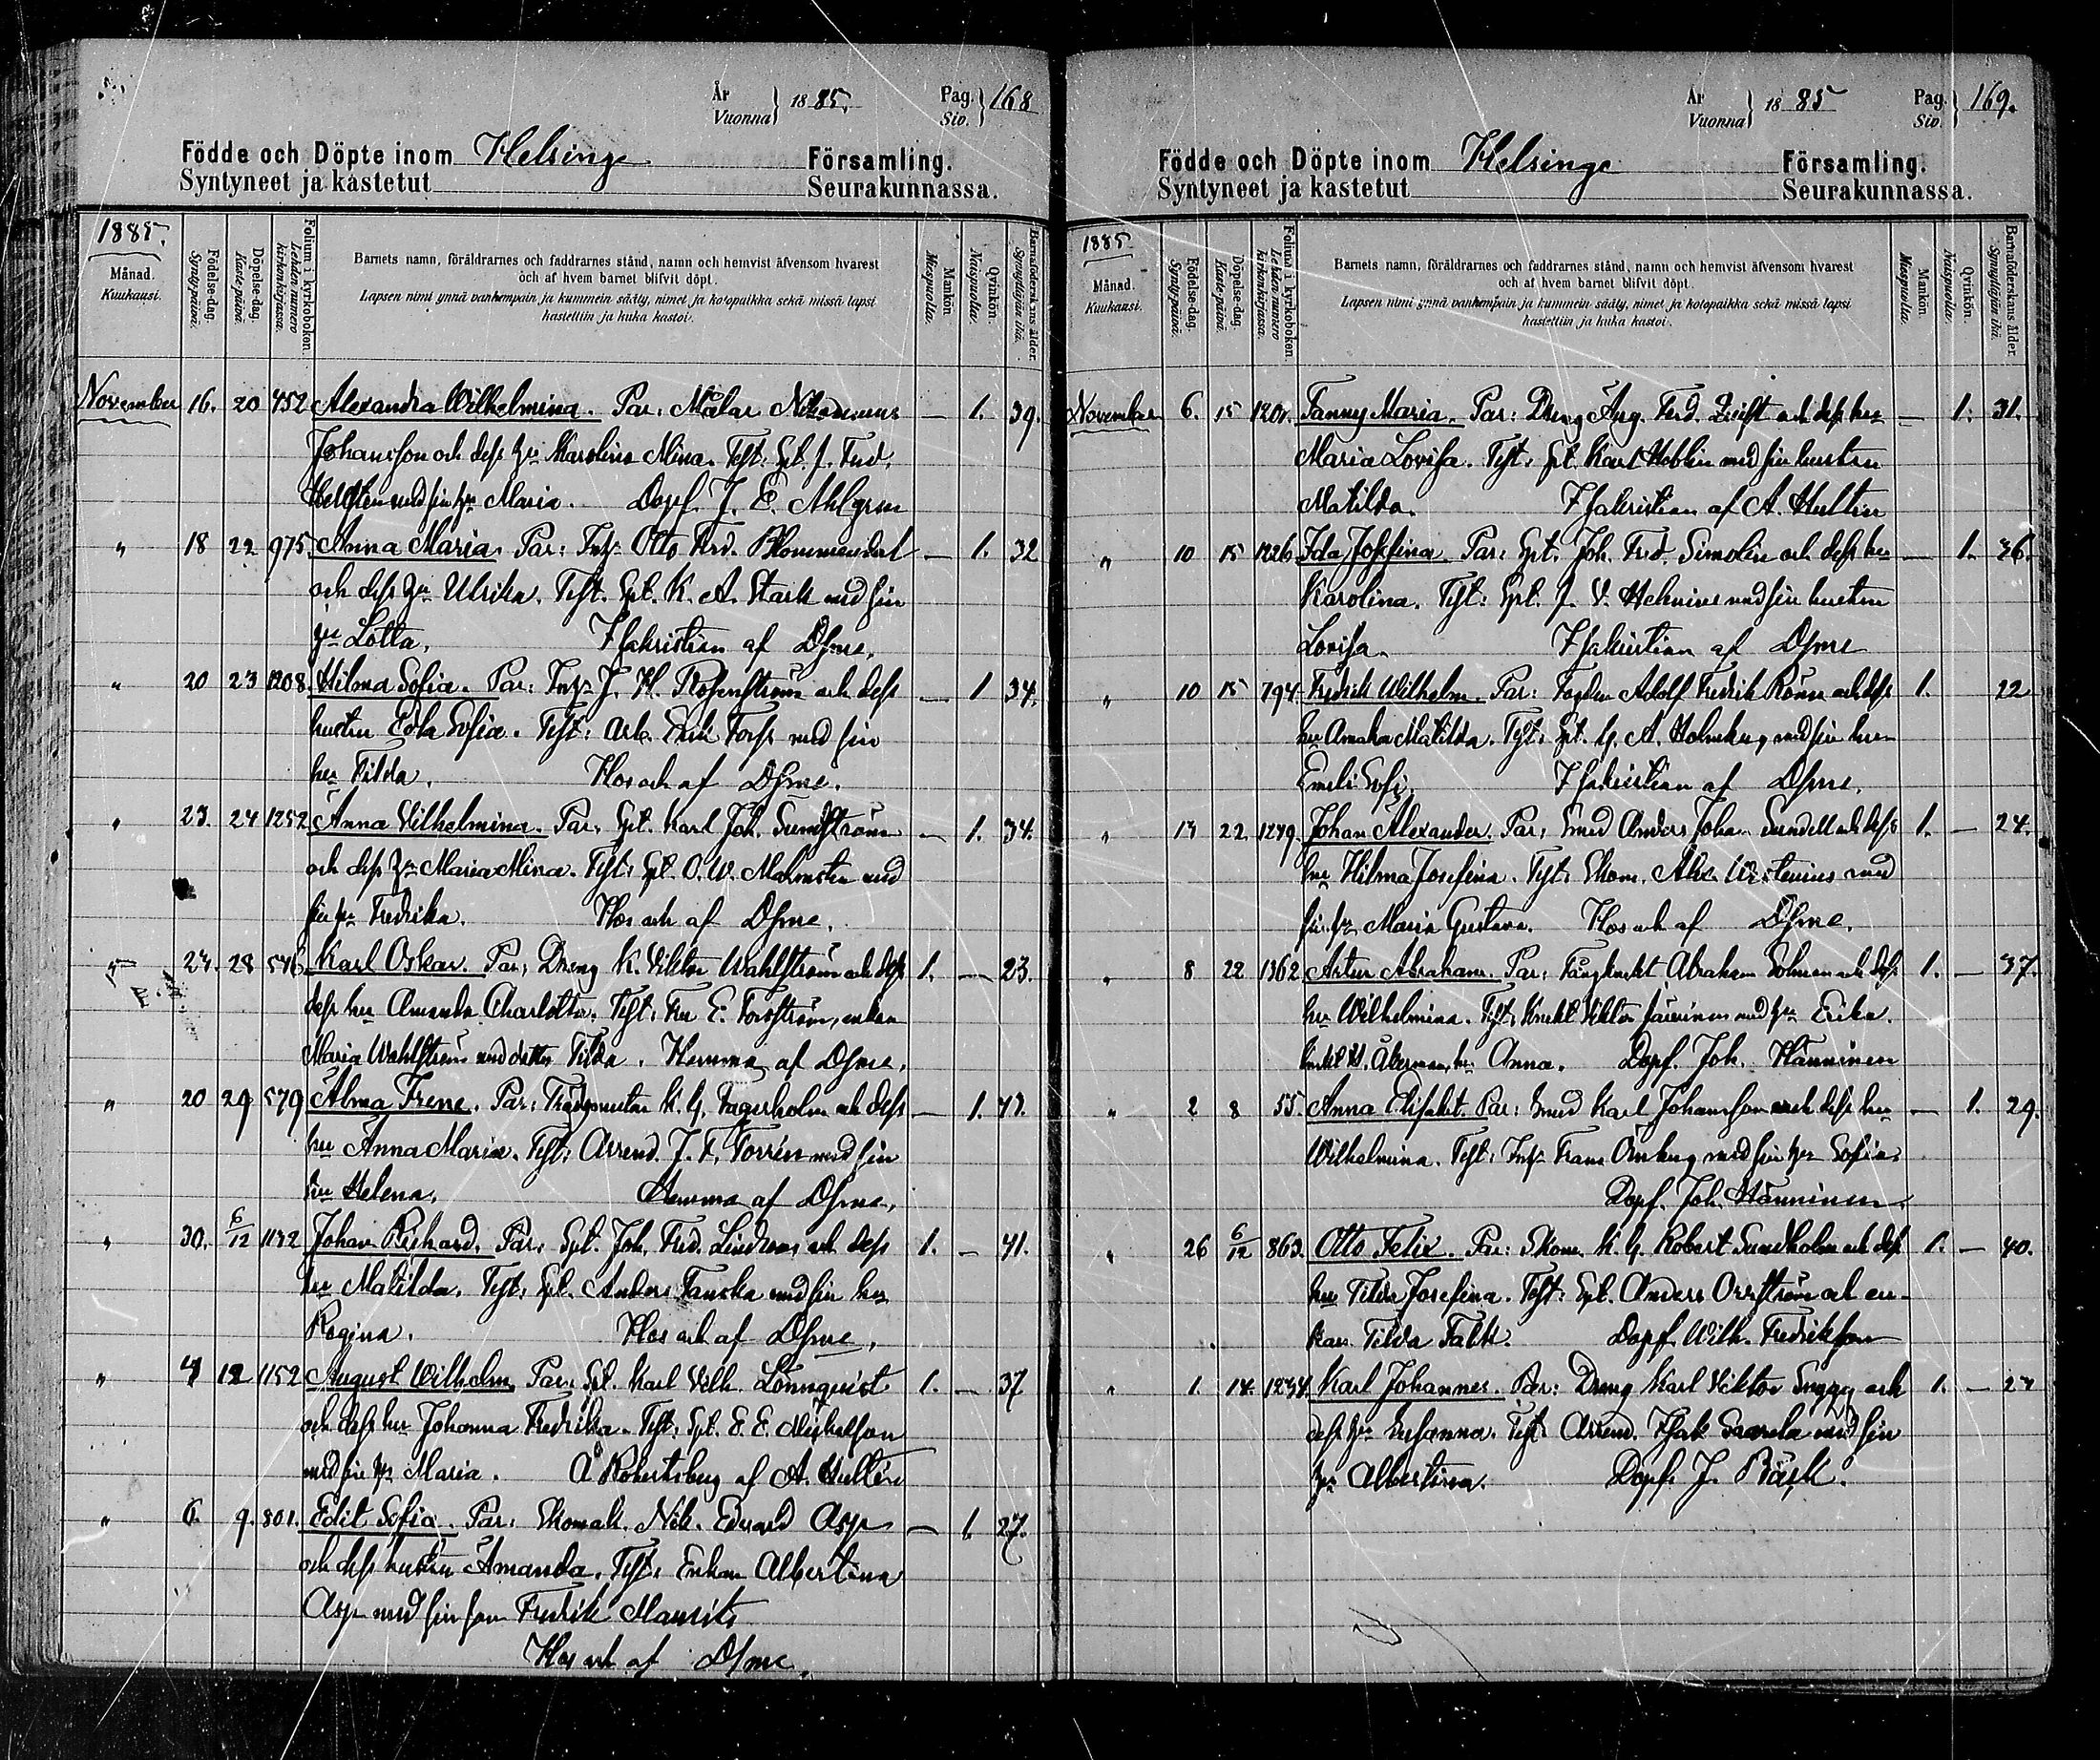 År
Vuonna } 1885.
Pag.
Siv. } 168
Födde och Döpte inom Helsinge Församling.
Syntyneet ja kastetut Seurakunnassa.
1885.
Månad.
Kuukausi.
Födelse-dag.
Syntypäivä.
Döpelse-dag.
Kaste-päivä.
Folium i kyrkoboken.
Lehden numero kirkonkirjassa.
Barnets namn, föräldrarnes och faddrarnes stånd, namn och hemvist äfvensom hvarest
och af hvem barnet blifvit döpt.
Lapsen nimi ynnä vanhempain ja kummein sääty, nimet ja kotopaikka sekä missä lapsi
kastettiin ja kuka kastoi.
Mankön.
Miespuolia.
Qvinkön.
Naispuolia.
Barnaföderskans ålder.
Synnyttäjän ikä.
November 16. 20 452 Alexandra Wilhelmina. Par: Målar Nikodemus — 1. 39.
Johansson och dess hu Karolina Mina. Test: Spt. J. Fred.
med sin hu Maria. Dopf. J. E. Ahlgren
" 18 22 975 Anna Maria. Par: Inh. Otto Ferd. Blommendal — 1. 32
och dess hu Ulrika. Test. Spt. K. A. Stark med sin
hu Lotta. I sakristian af Dsme.
" 20 23 1208. Hilma Sofia. Par: Inh. J. H. Rosenström och dess — 1 34.
hustru Edla Sofia. Test: Arb. Erik Forss med sin
hu Tilda. Hos och af Dsme.
" 23. 24 1252 Anna Vilhelmina. Par: Spt. Karl Joh. Sundström — 1. 34.
och dess hu Maria Mina. Test: Spt. O. W. Malmsten med
sin hu Fredrika. Hos och af Dsme.
" 27. 28 546 Karl Oskar. Par: Dreng K. Viktor Wahlström och dess 1. — 23.
dess hu Amanda Charlotta. Test: E. Forsström, enkan
Maria Wahlström med dotter Tilda. Hemma af Dsme.
" 20 29 579 Alma Irene. Par: Trädgmästar K. G. Fagerholm och dess — 1. 43.
hu Anna Maria. Test: Arrend. J. F. Torrén med sin
hu Helena. Hemma af Dsme.
" 30. 6/12 1132 Johan Richard. Par: Spt. Joh. Fred. Lindroos och dess 1. — 41.
hu Matilda. Test: Spt. Anders Tanska med sin hu
Regina. Hos och af Dsme.
" 4 12 1152 August Wilhelm. Par: Spt. Karl Vilh. Lönnqvist 1. — 37
och dess hu Johanna Fredrika. Test: Spt. E. E. Michelsson
med sin hu Maria. Å Robertsberg af A. Hultin
" 6. 9. 801. Edit Sofia. Par: Skomak. Nik. Edvard Asp — 1. 27.
och dess hustru Amanda. Test: Enkan Albertina
Asp med sin son Fredrik Maurits
Hos och af Dsme.
År
Vuonna } 1885
Pag.
Siv. } 169.
Födde och Döpte inom Helsinge Församling.
Syntyneet ja kastetut Seurakunnassa.
1885.
Månad.
Kuukausi.
Födelse-dag.
Syntypäivä.
Döpelse-dag.
Kaste-päivä.
Folium i kyrkoboken.
Lehden numero kirkonkirjassa.
Barnets namn, föräldrarnes och faddrarnes stånd, namn och hemvist äfvensom hvarest
och af hvem barnet blifvit döpt.
Lapsen nimi ynnä vanhempain ja kummein sääty, nimet ja kotopaikka sekä missä lapsi
kastettiin ja kuka kastoi.
Mankön.
Miespuolia.
Qvinkön.
Naispuolia.
Barnaföderskans ålder.
Synnyttäjän ikä.
November 6. 15 1201. Fanny Maria. Par: Dreng Aug. Ferd. och dess hu — 1. 31.
Maria Lovisa. Test: Spt. Karl Heblin med sin hustru
Matilda. I sakristian af A. Hultin
" 10 15 1226 Ida Josefina. Par: Spt. Joh. Fred. Simolin och dess hu — 1. 36.
Karolina. Test: Spt. J. V. Helenius med sin hustru
Lovisa. I sakristian af Dsme
" 10 15 794 Fredrik Wilhelm. Par: Adolf Fredrik Rönn och dess 1. 22
hu Amalia Matilda. Test: Spt. G. A. Holmberg med sin hu
Emeli Sofi. I sakristian af Dsme.
" 13 22 1279. Johan Alexander. Par: Smed Anders Johan Sundell och dess 1. — 24.
hu Hilma Josefina. Test: Skom. Alex. med
sin hu Maria Gustava. Hos och af Dsme.
" 8 22 1362 Artur Abraham. Par: Fångknekt Abraham Solman och dess 1. — 37.
hu Wilhelmina. Test: Knekt Viktor med hu Erika.
Knekt Åkerman, hu Anna. Dopf. Joh. Hänninen
" 2 8 55. Anna Elisabet. Par: Smed Karl Johansson och dess hu — 1. 29.
Wilhelmina. Test: Inh. Frans Örnberg med sin hu Sofia.
Dopf. Joh. Hänninen.
" 26 6/12 863. Otto Felix. Par: Skom. K. G. Robert Sundholm och dess 1. — 40.
hu Tilda Josefina. Test: Spt. Anders Orrström och en-
kan Tilda Falk. Dopf. Wilh. Fredriksson
" 1. 14. 1234. Karl Johannes. Par: Dreng Karl Viktor Snygg och 1. — 27
dess hu Susanna. Test: Arrend. Isak Saarela med sin
hu Albertina. Dopf. J. Bäck.